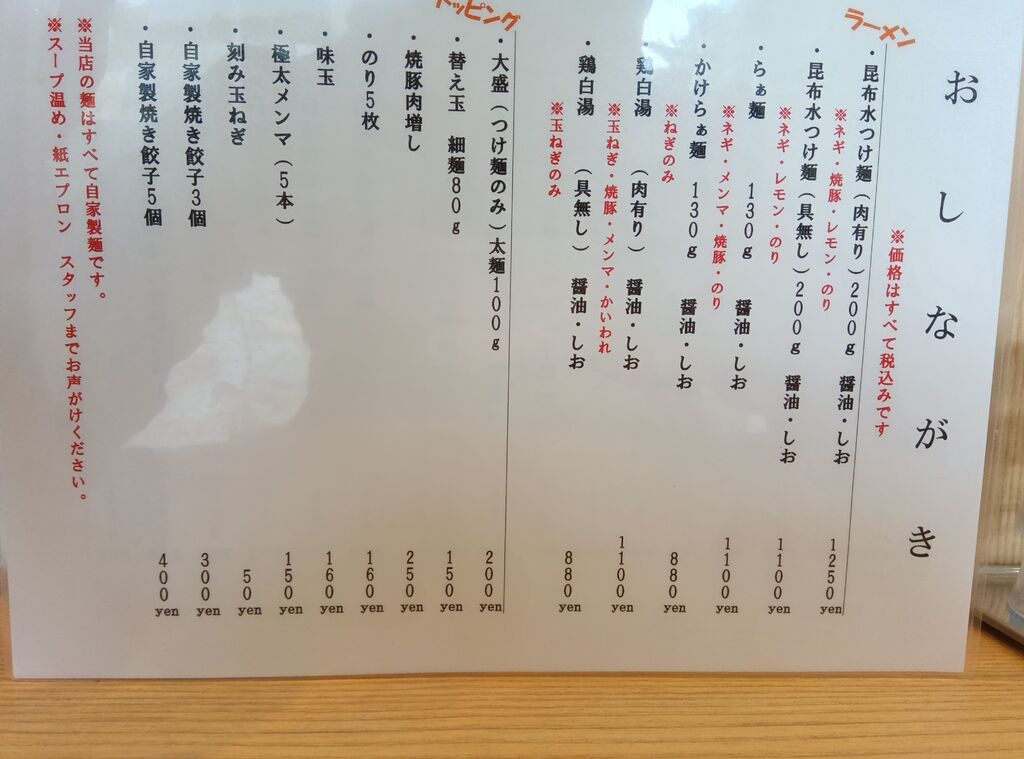 おしながき
※価格はすべて税込みです
ラーメン
・昆布水つけ麺（肉有り）200g 醤油・しお 1250yen
※ネギ・焼豚・レモン・のり
・昆布水つけ麺（具無し）200g 醤油・しお 1100yen
※ネギ・レモン・のり
・らぁ麺 130g 醤油・しお 1100yen
※ネギ・メンマ・焼豚・のり
・かけらぁ麺 130g 醤油・しお 880yen
※ねぎのみ
・鶏白湯（肉有り） 醤油・しお 1100yen
※玉ねぎ・焼豚・メンマ・かいわれ
・鶏白湯（具無し） 醤油・しお 880yen
※玉ねぎのみ
トッピング
・大盛（つけ麺のみ）太麺100g 200yen
・替え玉 細麺80g 150yen
・焼豚肉増し 250yen
・のり5枚 160yen
・味玉 160yen
・極太メンマ（5本） 150yen
・刻み玉ねぎ 50yen
・自家製焼き餃子3個 300yen
・自家製焼き餃子5個 400yen
※当店の麺はすべて自家製麺です。
※スープ温め・紙エプロン スタッフまでお声がけください。